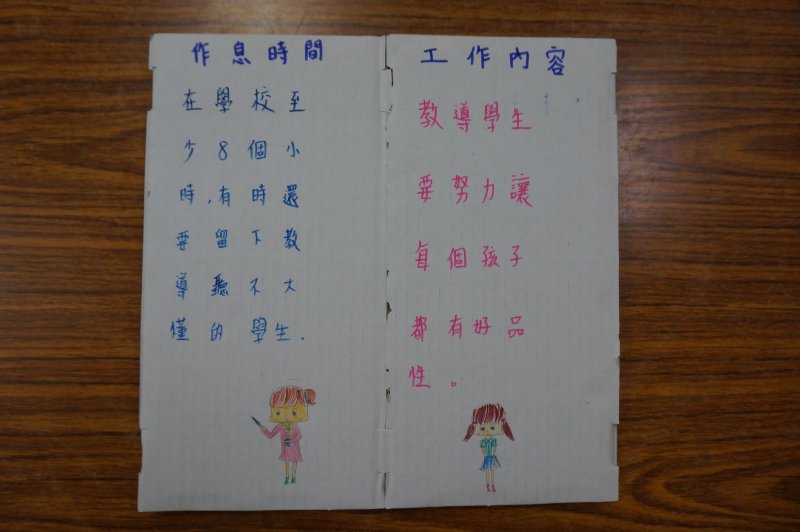 作息時間
在學校至
少8個小
時,有時還
要留下教
導聽不大
懂的學生.
工作內容
教導學生
要努力讓
每個孩子
都有好品
性。